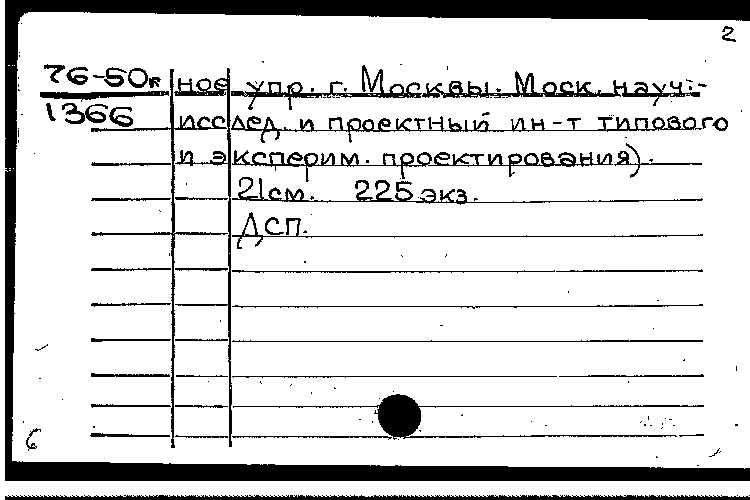 2
76-50к ное упр. г. Москвы. Моск. науч.-
1366 исслед. и проектный ин-т типового
и эксперим. проектирования).
21см. 225 экз.
ДСП.
6